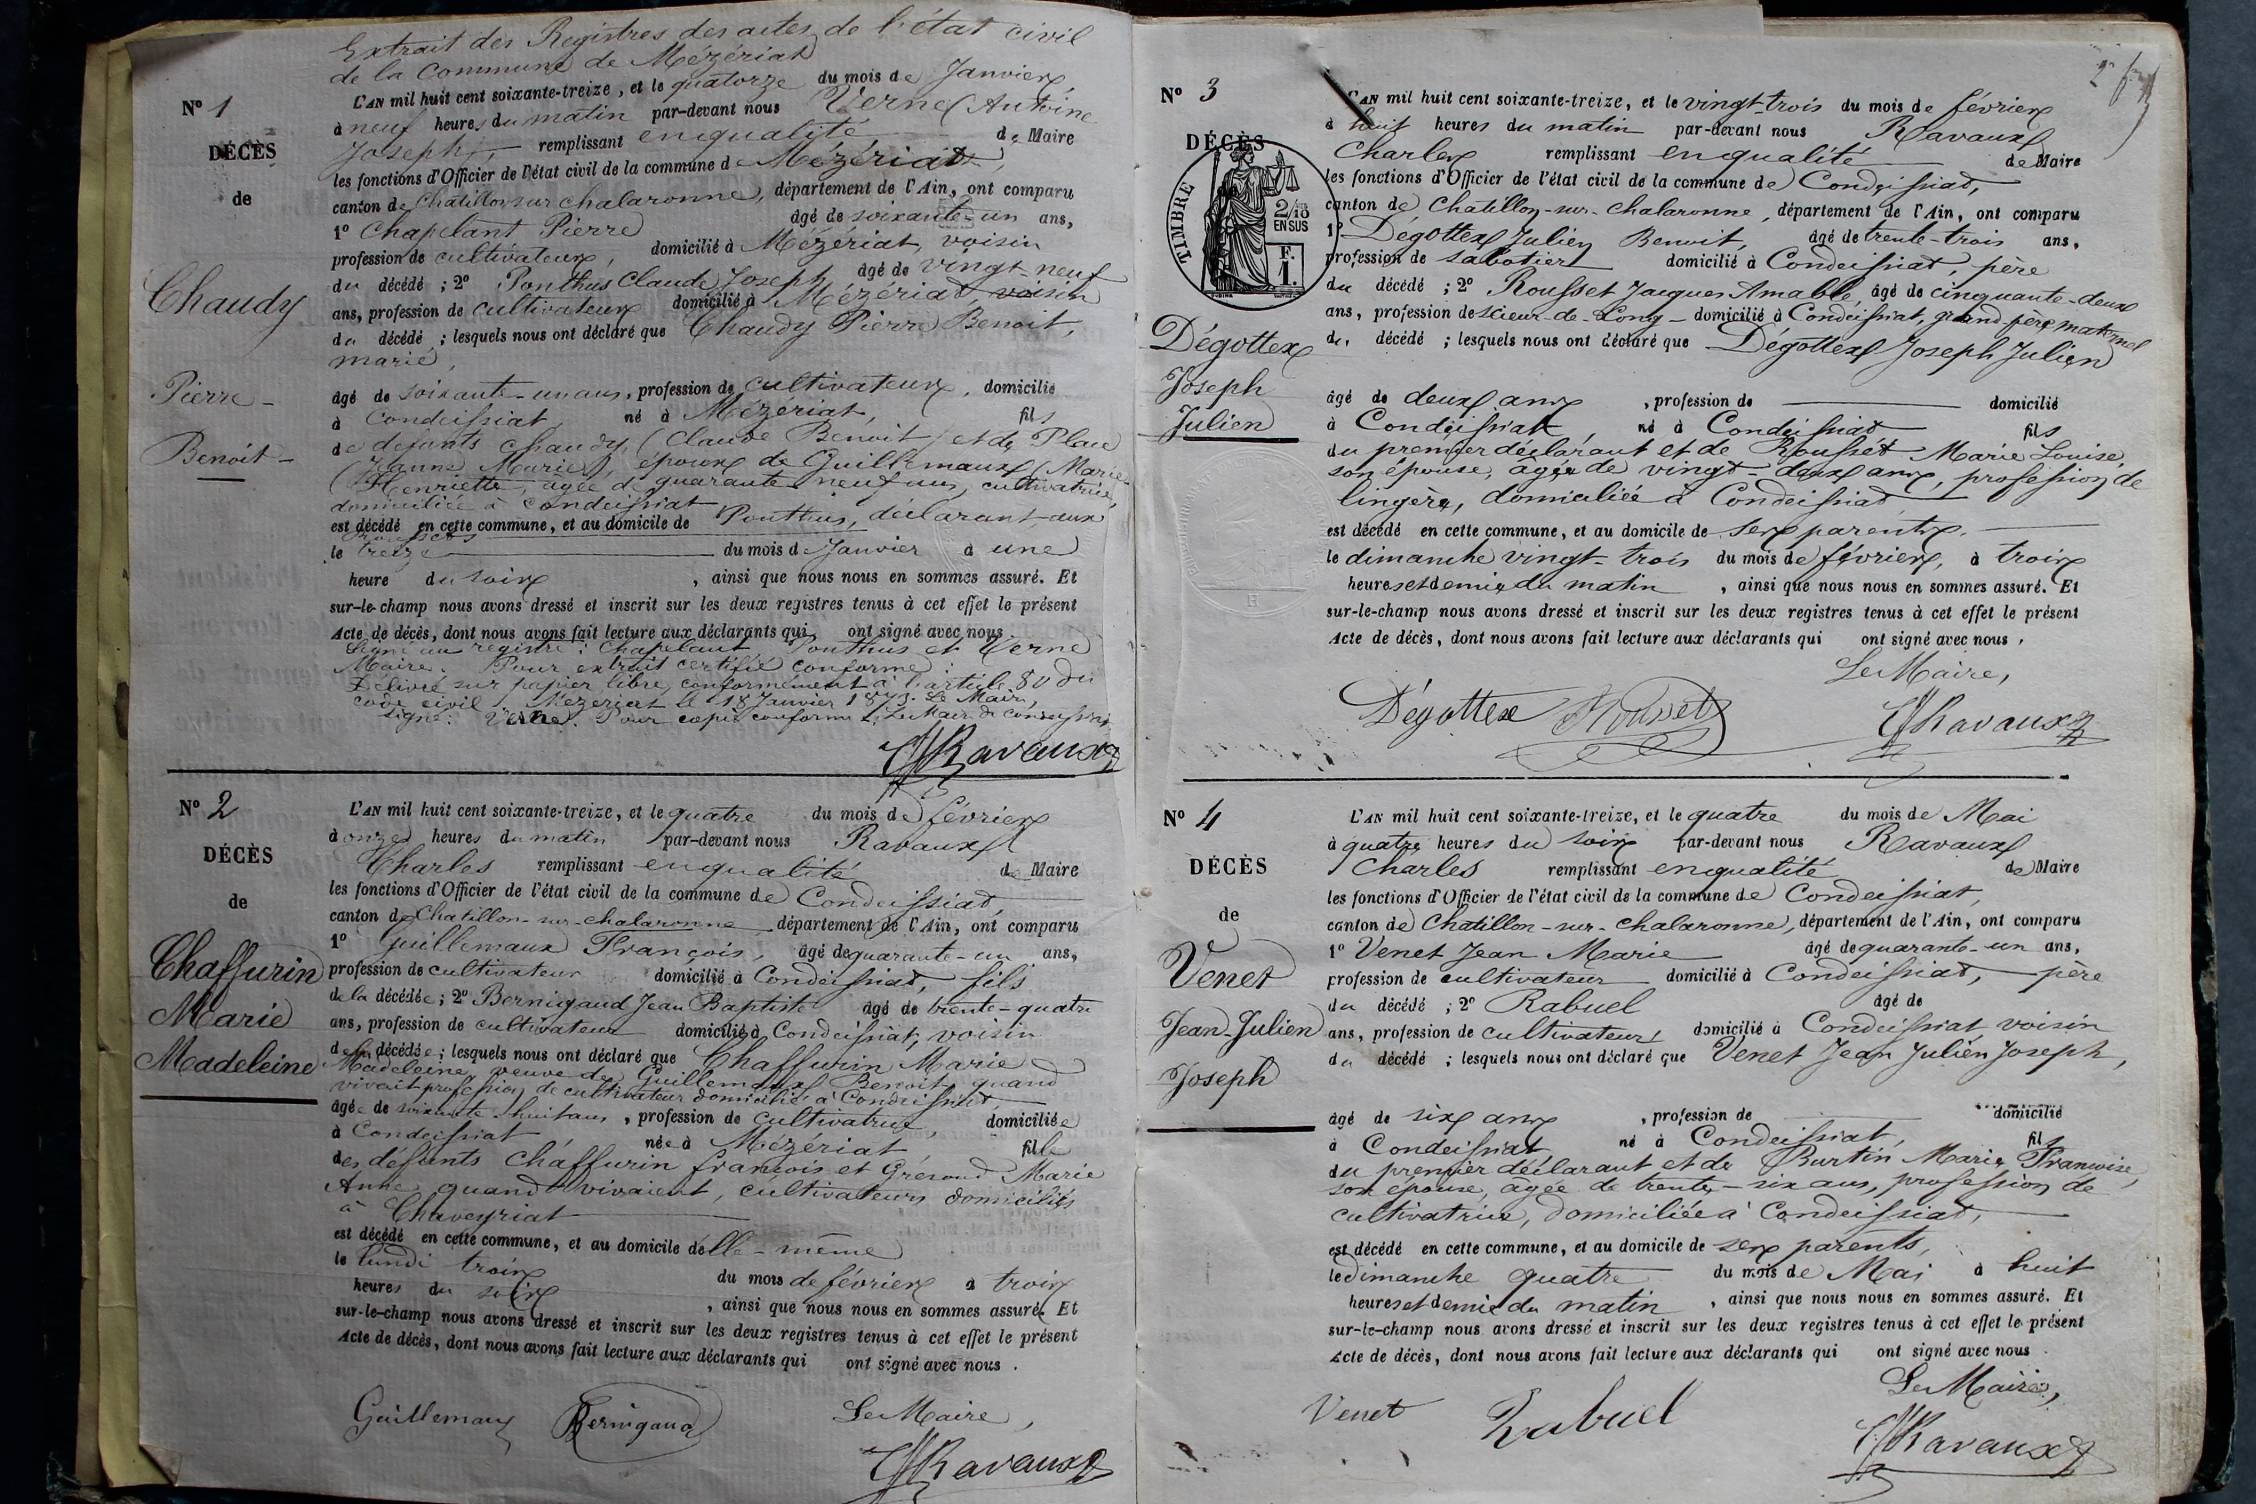 Extrait des Registres des actes de l'état civil
de la Commune de Mézériat
N° 1
DÉCÈS
de
Chaudy
Pierre -
Benoit -
L'AN mil huit cent soixante-treize, et le quatorze du mois de Janvier
à neuf heures du matin par-devant nous Verne (Antoine
Joseph), remplissant en qualité de Maire
les fonctions d'Officier de l'état civil de la commune de Mézériat,
canton de Chatillon sur Chalaronne, département de l'Ain, ont comparu
1° Chapelant Pierre âgé de soixante-un ans,
profession de cultivateur, domicilié à Mézériat, voisin
du décédé ; 2° Ponthus Claude Joseph âgé de vingt-neuf
ans, profession de cultivateur domicilié à Mézériat, voisin
du décédé ; lesquels nous ont déclaré que Chaudy Pierre Benoit,
marié,
âgé de soixante-un ans, profession de cultivateur, domicilié
à Condeissiat, né à Mézériat, fils
de défunts Chaudy (Claude Benoit) et de Place
(Jeanne Marie), époux de Guillemaux (Marie-
Henriette, agée de quarante neuf ans, cultivatrice,
domiciliée à Condeissiat
est décédé en cette commune, et au domicile de Ponthus, déclarant aux
le treize du mois de Janvier à une
heure du soir, ainsi que nous nous en sommes assuré. Et
sur-le-champ nous avons dressé et inscrit sur les deux registres tenus à cet effet le présent
Acte de décès, dont nous avons fait lecture aux déclarants qui ont signé avec nous.
Signé au registre : Chapelant Ponthus et Verne
Maire. Pour extrait certifié conforme :
Délivré sur papier libre, conformément à l'article 80 du
code civil, Mézériat le 18 Janvier 1873. Le Maire,
signé: Verne. Pour copie conforme, Le Maire de Condeissiat
Ravaux
N° 2
DÉCÈS
de
Chaffurin
Marie
Madeleine
L'AN mil huit cent soixante-treize, et le quatre du mois de février
à onze heures du matin par-devant nous Ravaux
Charles remplissant en qualité de Maire
les fonctions d'Officier de l'état civil de la commune de Condeissiat,
canton de Chatillon-sur-chalaronne département de l'Ain, ont comparu
1° Guillemaux François, âgé de quarante-un ans,
profession de cultivateur domicilié à Condeissiat, fils
de la décédée ; 2° Bernigaud Jean Baptiste âgé de trente-quatre
ans, profession de cultivateur domicilié à Condeissiat, voisin
de la décédée ; lesquels nous ont déclaré que Chaffurin Marie
Madeleine, veuve de Guillemaux Benoit, quand
vivait profession de cultivateur domicilié à Condeissiat
âgée de soixante-huit ans, profession de cultivatrice, domiciliée
à Condeissiat née à Mézériat fille
des défunts Chaffurin françois et Marie
Anne, quand vivaient, cultivateurs domiciliés
à Chaveyriat
est décédé en cette commune, et au domicile d'elle-même
le lundi trois du mois de février à trois
heures du soir, ainsi que nous nous en sommes assuré. Et
sur-le-champ nous avons dressé et inscrit sur les deux registres tenus à cet effet le présent
Acte de décès, dont nous avons fait lecture aux déclarants qui ont signé avec nous.
Guillemaux Bernigaud Le Maire,
Ravaux
N° 3
DÉCÈS
TIMBRE
2/10
EN SUS
F.
1.
Dégottex
Joseph
Julien
L'AN mil huit cent soixante-treize, et le vingt-trois du mois de février
à huit heures du matin par-devant nous Ravaux
Charles remplissant en qualité de Maire
les fonctions d'Officier de l'état civil de la commune de Condeissiat,
canton de Chatillon-sur-Chalaronne, département de l'Ain, ont comparu
1° Dégottex Julien Benoit, âgé de trente-trois ans,
profession de sabotier domicilié à Condeissiat, père
du décédé ; 2° Rousset Jacques Amable, âgé de cinquante-deux
ans, profession de scieur-de-Long domicilié à Condeissiat, grand père maternel
du décédé ; lesquels nous ont déclaré que Dégottex Joseph Julien
âgé de deux ans, profession de domicilié
à Condeissiat, né à Condeissiat fils
du premier déclarant et de Rousset Marie Louise,
son épouse, âgée de vingt-deux ans, profession de
lingère, domiciliée à Condeissiat
est décédé en cette commune, et au domicile de ses parents.
le dimanche vingt-trois du mois de février, à trois
heures et demie du matin, ainsi que nous nous en sommes assuré. Et
sur-le-champ nous avons dressé et inscrit sur les deux registres tenus à cet effet le présent
Acte de décès, dont nous avons fait lecture aux déclarants qui ont signé avec nous.
Le Maire,
Dégottex Rousset Ravaux
N° 4
DÉCÈS
de
Venet
Jean-Julien
Joseph
L'AN mil huit cent soixante-treize, et le quatre du mois de Mai
à quatre heures du soir par-devant nous Ravaux
Charles remplissant en qualité de Maire
les fonctions d'Officier de l'état civil de la commune de Condeissiat,
canton de Chatillon-sur-Chalaronne, département de l'Ain, ont comparu
1° Venet Jean Marie âgé de quarante-un ans,
profession de cultivateur domicilié à Condeissiat, père
du décédé ; 2° Rabuel âgé de
ans, profession de cultivateur, domicilié à Condeissiat voisin
du décédé ; lesquels nous ont déclaré que Venet Jean Julien Joseph,
âgé de six ans, profession de domicilié
à Condeissiat, né à Condeissiat, fils
du premier déclarant et de Burtin Marie Francoise,
son épouse, âgée de trente-six ans, profession de
cultivatrice, domiciliée à Condeissiat,
est décédé en cette commune, et au domicile de ses parents,
le Dimanche quatre du mois de Mai à huit
heures et demie du matin, ainsi que nous nous en sommes assuré. Et
sur-le-champ nous avons dressé et inscrit sur les deux registres tenus à cet effet le présent
Acte de décès, dont nous avons fait lecture aux déclarants qui ont signé avec nous.
Le Maire,
Venet Rabuel Ravaux